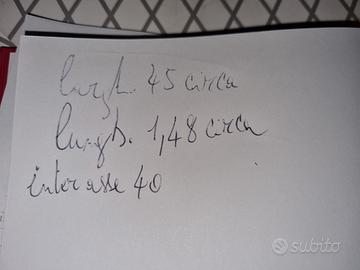 largh. 45 circa
lungh. 1,48 circa
interasse 40
subito